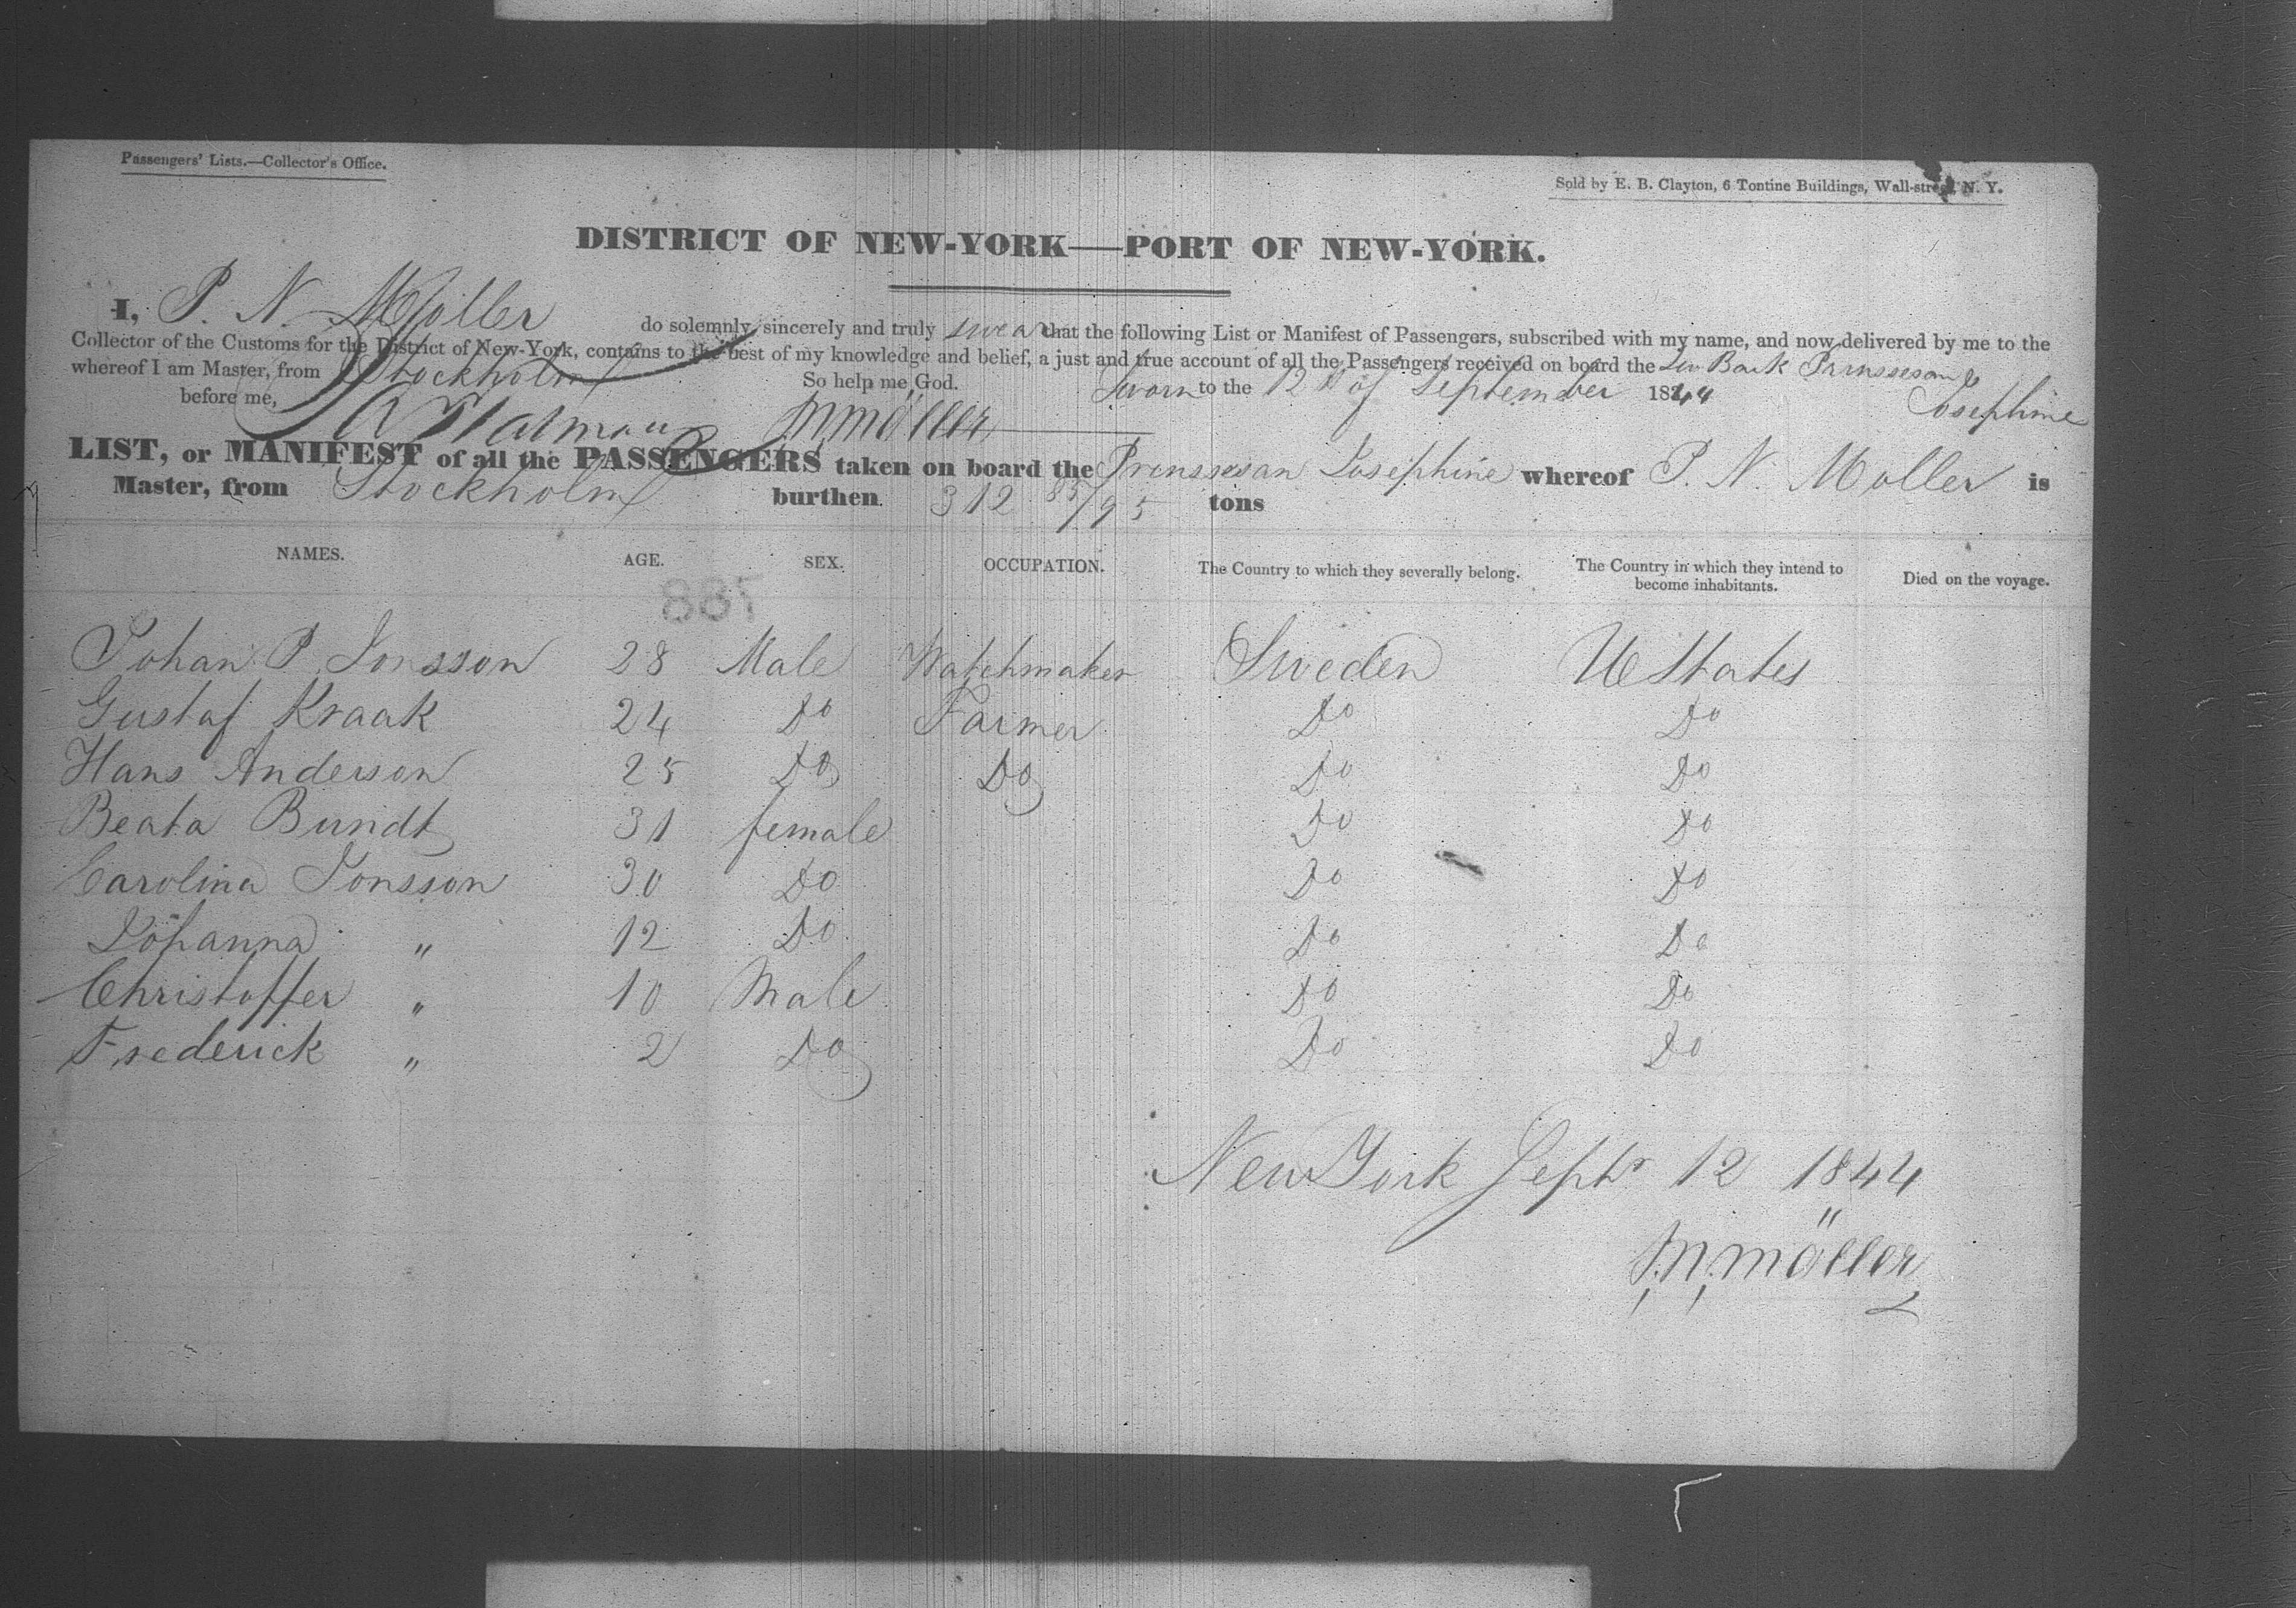 Passengers' Lists.—Collector's Office.
Sold by E. B. Clayton, 6 Tontine Buildings, Wall-street, N. Y.
DISTRICT OF NEW-YORK—PORT OF NEW-YORK.
I, P. N. Möller do solemnly, sincerely and truly swear that the following List or Manifest of Passengers, subscribed with my name, and now delivered by me to the
Collector of the Customs for the District of New-York, contains to the best of my knowledge and belief, a just and true account of all the Passengers received on board the Bark Prinssesan
whereof I am Master, from Stockholm So help me God. Sworn to the 12th of September 1844 Josephine
before me, P.N. Möller
LIST, or MANIFEST of all the PASSENGERS taken on board the Prinssesan Josephine whereof P. N. Moller is
Master, from Stockholm burthen 312 85/95 tons
NAMES. AGE. SEX. OCCUPATION. The Country to which they severally belong. The Country in which they intend to become inhabitants. Died on the voyage.
Johan P. Jonsson 28 Male Watchmaker Sweden U States
Gustaf Kraak 24 Do Farmer Do Do
Hans Anderson 25 Do Do Do Do
Beata Bundt 31 female Do Do
Carolina Jonsson 30 Do Do Do
Johanna " 12 Do Do Do
Christoffer " 10 Male Do Do
Frederick " 2 Do Do Do
New York Septr 12 1844
P.N. Möller